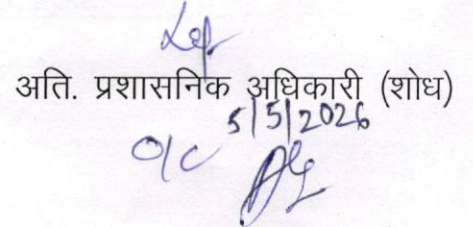 अति. प्रशासनिक अधिकारी (शोध)
5/5/2026
O/C